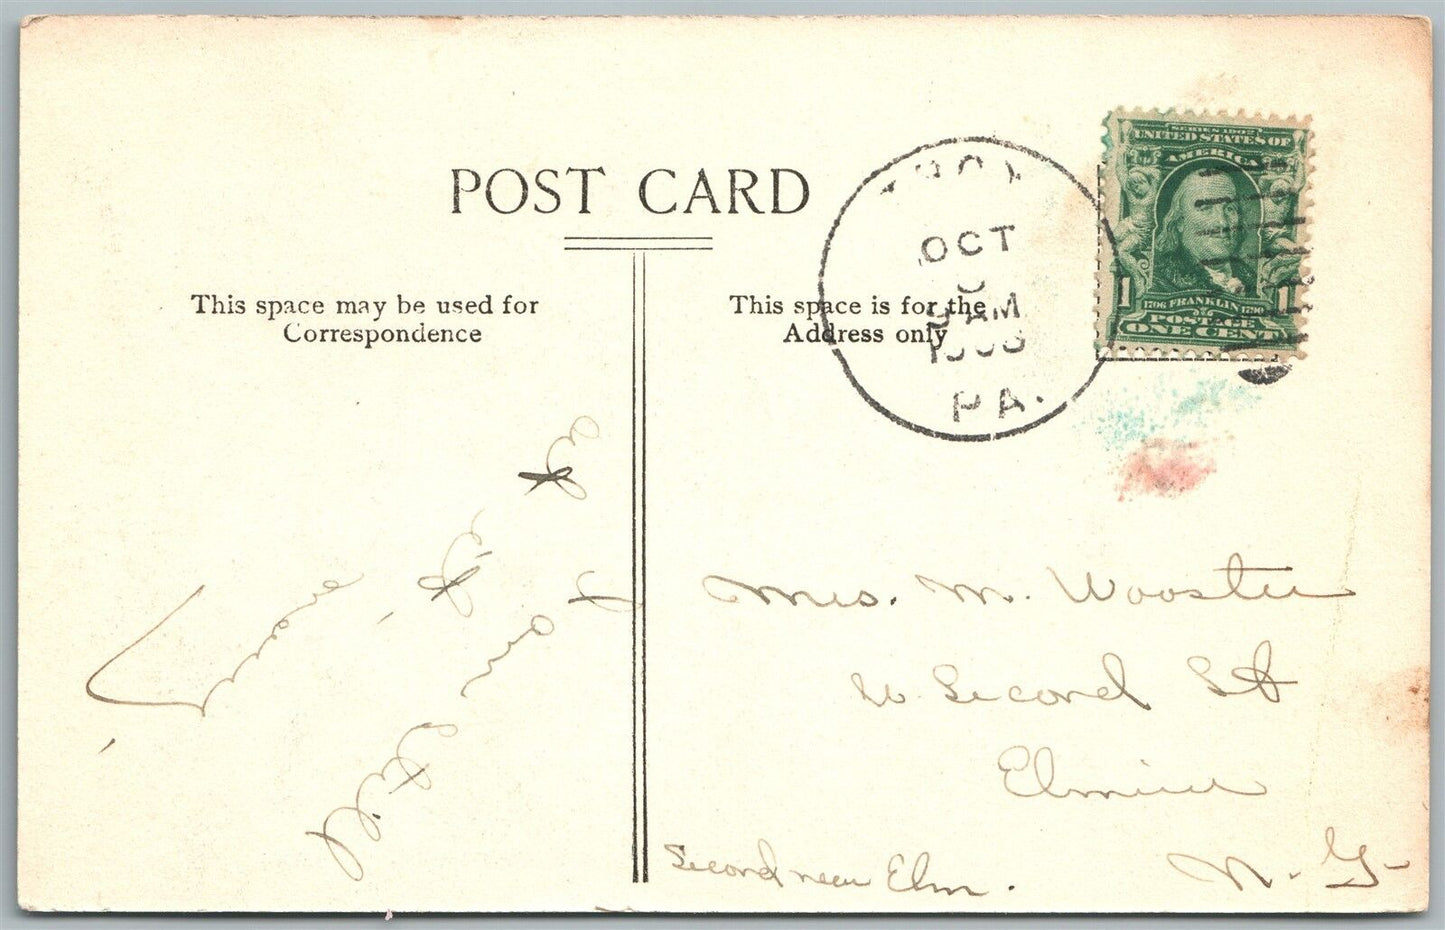 POST CARD
This space may be used for
Correspondence
This space is for the
Address only
TROY
OCT
9 AM
PA.
SERIES 1902
UNITED STATES OF
AMERICA
1 1
1706 FRANKLIN 1790
POSTAGE
ONE CENT
I am still
at it.
Mrs. M. Wooster
W. Second St
Elmira
N. Y.
Second near Elm.